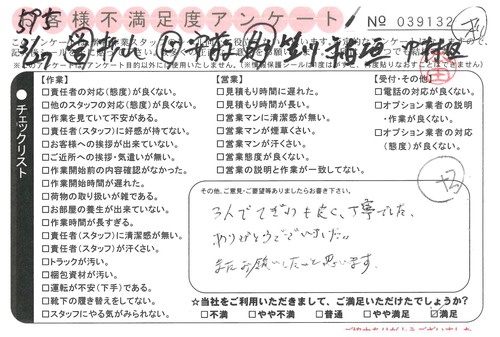 お客様不満足度アンケート
No 039132
【作業】
□責任者の対応(態度)が良くない。
□他のスタッフの対応(態度)が良くない。
□作業を見ていて不安がある。
□責任者(スタッフ)に好感が持てない。
□お客様への挨拶が出来ていない。
□ご近所への挨拶・気遣いが無い。
□作業開始前の内容確認がなかった。
□作業開始時間が遅れた。
□荷物の取り扱いが雑である。
□お部屋の養生が出来ていない。
□作業時間が長すぎる。
□責任者(スタッフ)に清潔感が無い。
□責任者(スタッフ)が汗くさい。
□トラックが汚い。
□梱包資材が汚い。
□運転が不安(下手)である。
□靴下の履き替えをしてない。
□スタッフにやる気がみられない。
【営業】
□見積もり時間に遅れた。
□見積もり時間が長い。
□営業マンに清潔感が無い。
□営業マンが煙草くさい。
□営業マンが汗くさい。
□営業態度が良くない。
□営業の説明と作業が一致してない。
【受付・その他】
□電話の対応が良くない。
□オプション業者の説明
・作業が良くない。
□オプション業者の対応
(態度)が良くない。
チェックリスト
その他、ご意見・ご要望等ありましたらお書き下さい。
3人でてぎわも良く、丁寧でした。
ありがとうございました。
またお願いしたいと思います。
☆当社をご利用いただきまして、ご満足いただけたでしょうか?
□不満 □やや不満 □普通 □やや満足 ☑満足